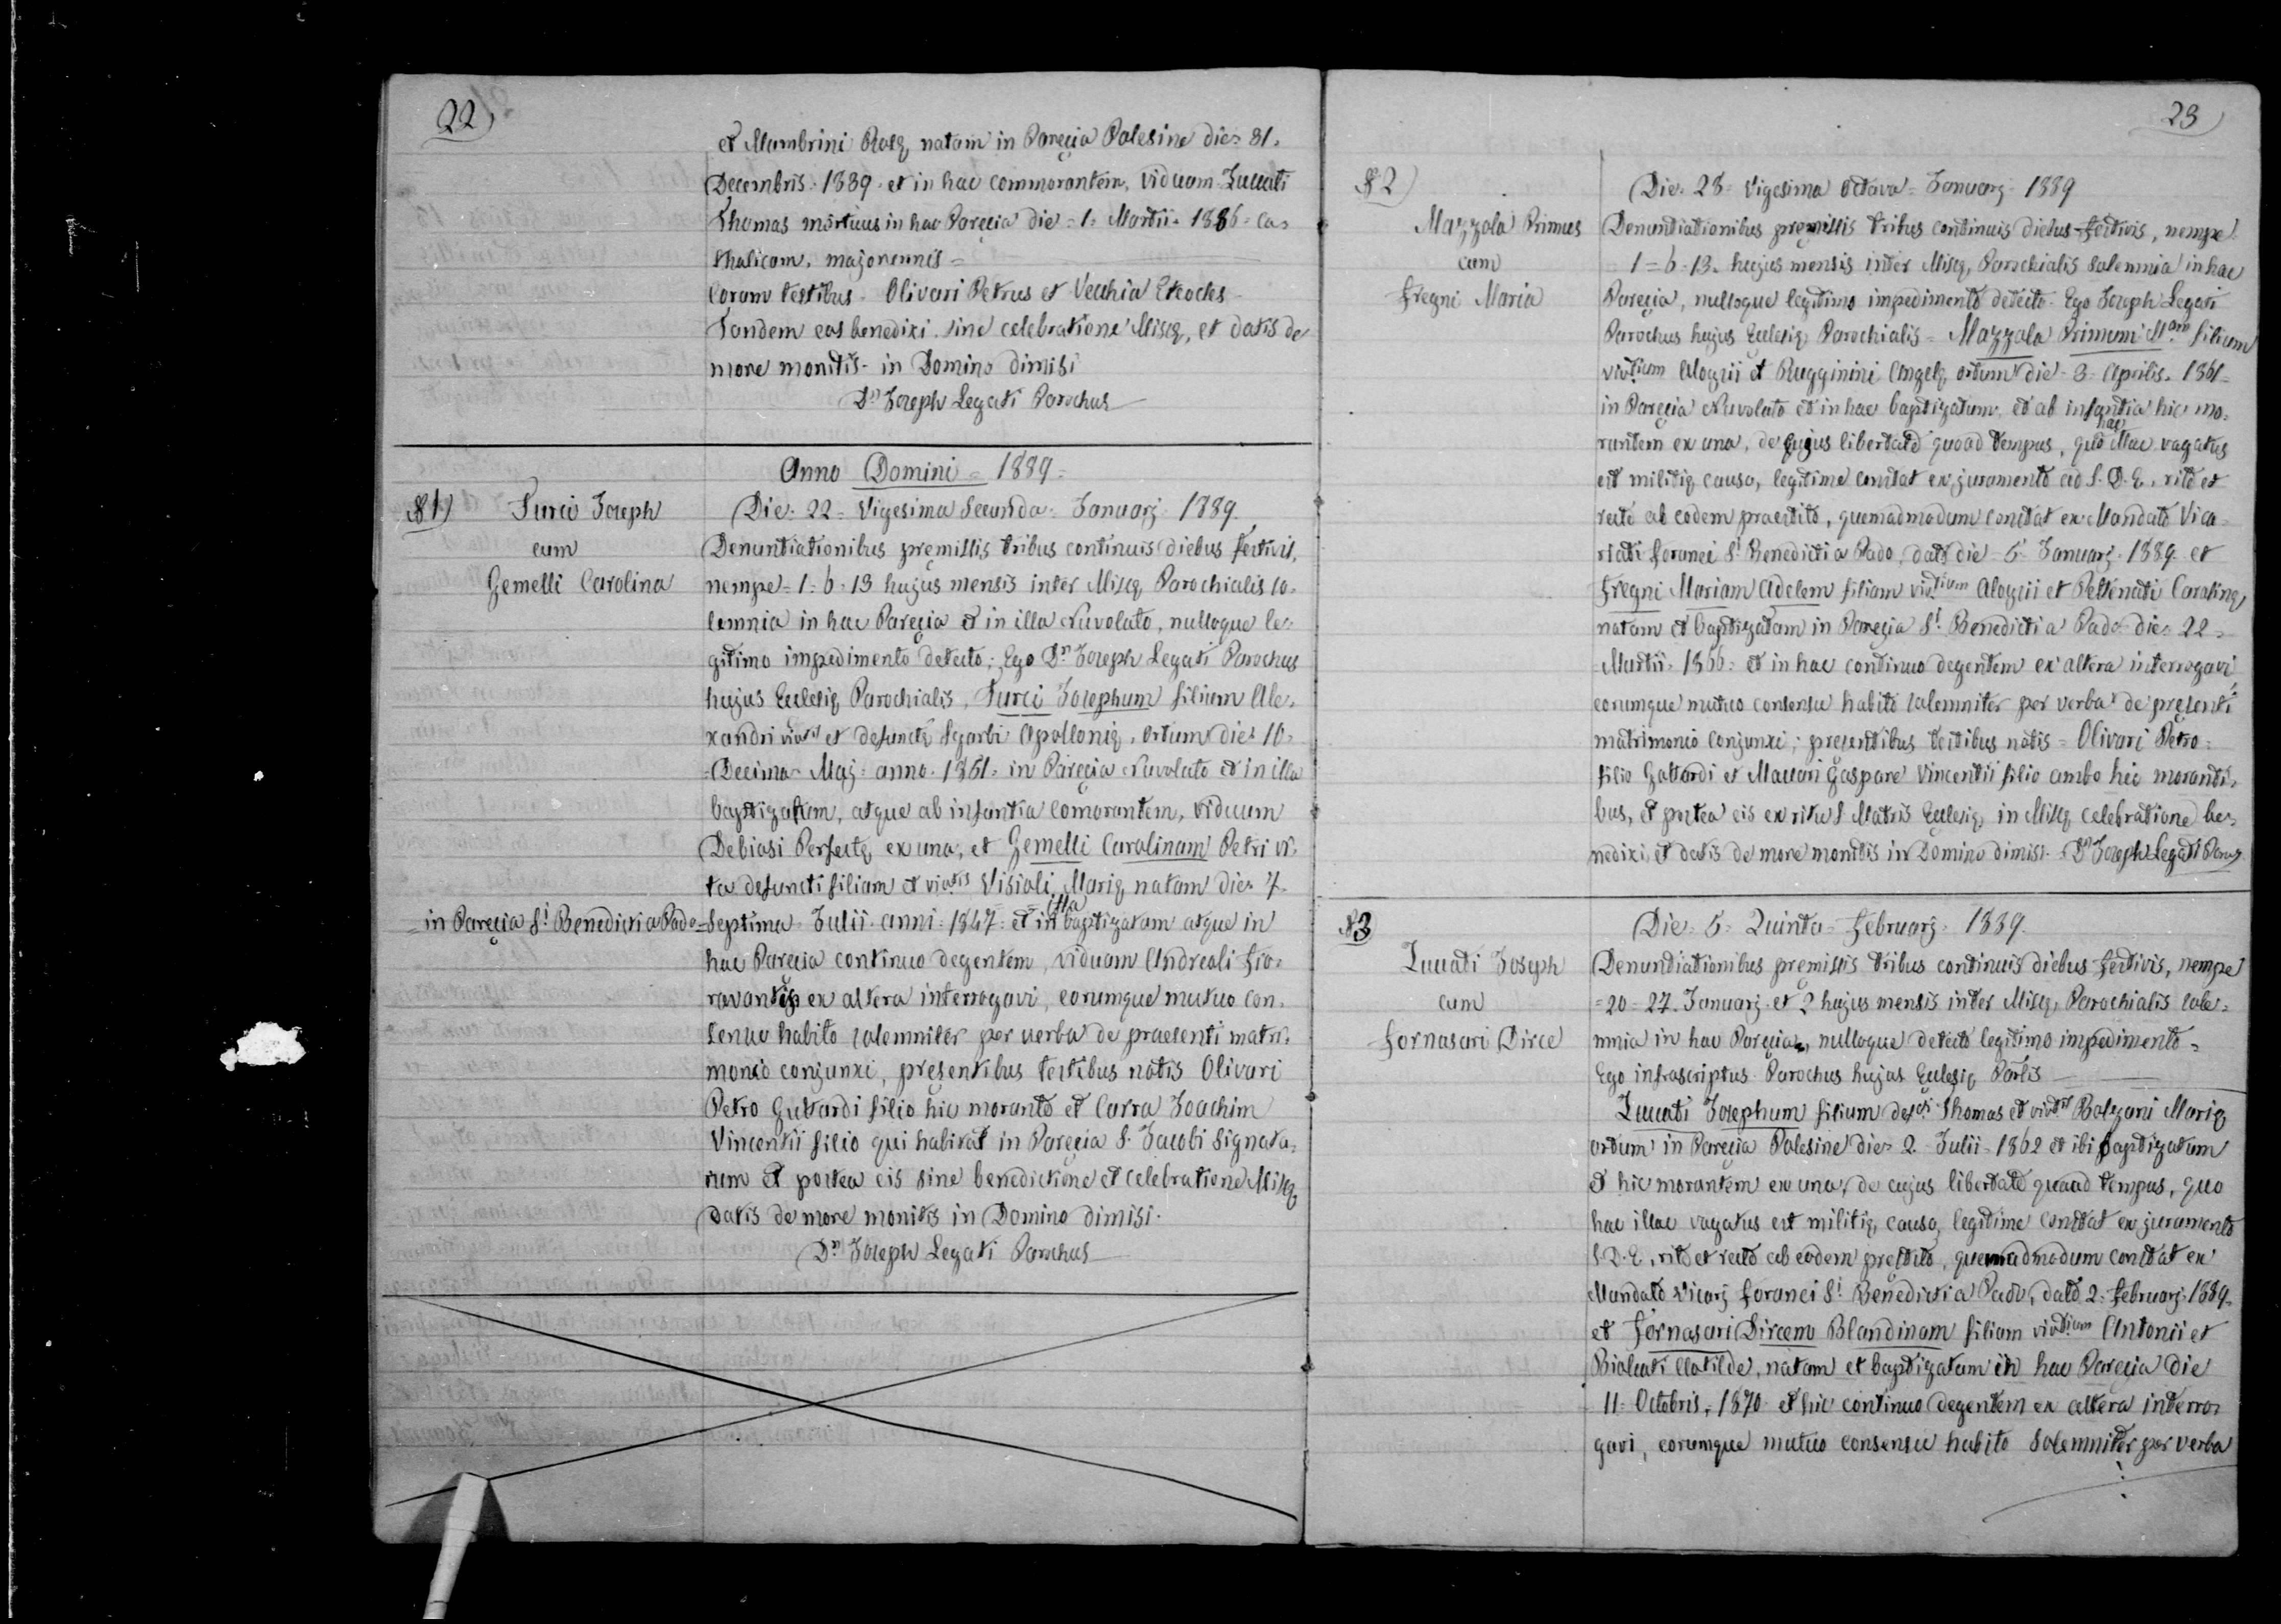 22)
et Mambrini Rosę natam in Paręcia Palesine die = 31 =
Decembris = 1839 = et in hac commorantem, viduam Zuccati
Thomas mortuus in hac Paręcia die = 1 = Martii = 1886 = ca=
tholicam, majorennis =
Coram testibus = Olivari Petrus et Vecchia Eteocles
Tandem eos benedixi sine celebratione Missę, et datis de
more monitis in Domino dimisi
Dn Joseph Legati Parochus
Anno Domini = 1889 =
№ 1)
Turci Joseph
cum
Gemelli Carolina
Die = 22 = Vigesima Secunda = Januarj = 1889
Denuntiationibus premissis tribus continuis diebus festivis,
nempe = 1 = 6 = 13 hujus mensis inter Missę Parochialis so=
lemnia in hac Paręcia et in illa Nuvolato, nulloque le=
gitimo impedimento detecto; Ego Dn Joseph Legati Parochus
hujus Ecclesię Parochialis, Turci Josephum filium Ale=
xandri vivtis et defunctę Sgarbi Apollonię, ortum die = 10 =
= Decima = Maj = anno = 1861 = in Paręcia Nuvolato et in illa
baptizatum, atque ab infantia comorantem, viduum
Debiasi Perfectę ex una, et Gemelli Carolinam Petri vi=
ta defuncti filiam et vivtis Visioli Marię natam die = 7 =
in Paręcia Si Benedicti a Pado = Septima = Julii = anni = 1847 = et in illa baptizatam atque in
hac Paręcia continuo degentem, viduam Andreoli Fio=
ravantis ex altera interrogavi, eorumque mutuo con=
sensu habito solemniter per verba de praesenti matri=
monio conjunxi, pręsentibus testibus notis Olivari
Petro Gottardi filio hic morante et Carra Joachim
Vincentii filio qui habitat in Paręcia S. Jacobi Signata=
rum et postea eis sine benedictione et celebratione Missę
datis de more monitis in Domino dimisi.
Dn Joseph Legati Parochus
23)
№ 2)
Mazzola Primus
cum
Fregni Maria
Die = 28 = Vigesima Octava = Januarj = 1889
Denuntiationibus pręmissis tribus continuis diebus festivis, nempe
1 = 6 = 13 = hujus mensis inter Missę, Parochialis Solemnia in hac
Paręcia, nulloque legitimo impedimento detecto = Ego Joseph Legati
Parochus hujus Ecclesię Parochialis = Mazzola Primum Mam filium
vivtium Aloysii et Rugginini Angelę ortum die = 3 = Aprilis = 1861 =
in Paręcia Nuvolato et in hac baptizatum, et ab infantia hic mo=
rantem ex una, de cujus libertate quoad tempus, quo hac illac vagatus
est militię causa, legitime constat ex juramento ad S. D. E. rite et
recte ab eodem praestito, quemadmodum constat ex Mandato Vica=
riati foranei Si Benedicti a Pado, dato die = 5 = Januarj = 1889 = et
Fregni Mariam Adelem filiam vivtium Aloysii et Pettenati Carolinę
natam et baptizatam in Paręcia Si Benedicti a Pado die = 22 =
= Martii = 1866 = et in hac continuo degentem ex altera interrogavi,
eorumque mutuo consensu habito solemniter per verba de pręsenti
matrimonio conjunxi; pręsentibus testibus notis = Olivari Petro =
filio Gottardi et Maccari Gaspare Vincentii filio ambo hic moranti=
bus, et postea eis ex ritu S. Matris Ecclesię, in Missę celebratione be=
nedixi, et datis de more monitis in Domino dimisi. Dn Joseph Legati Paroc
№ 3
Zuccati Joseph
cum
Fornasari Dirce
Die = 5 = Quinta = Februarj = 1889.
Denuntiationibus premissis tribus continuis diebus festivis, nempe
= 20 = 27 = Januarj = et 2 hujus mensis inter Missę, Parochialis sole=
mnia in hac Paręcia, nulloque detecto legitimo impedimento =
Ego infrascriptus Parochus hujus Ecclesię Parlis
Zuccati Josephum filium defcti Thomas et vivtis Bolzani Marię
ortum in Paręcia Palesine die = 2 = Julii = 1862 et ibi baptizatum
et hic morantem ex una, de cujus libertate quoad tempus, quo
hac illac vagatus est militię causa, legitime constat ex juramento
S. D. E. rite et recte ab eodem pręstito, quemadmodum constat ex
Mandato Vicarj foranei Si Benedicti a Pado, dato 2 = Februarj = 1889 =
et Fornasari Dircem Blandinam filiam vivtium Antonii et
Bioleati Clotilde, natam et baptizatam in hac Paręcia die
11 = Octobris = 1870 = et hic continuo degentem ex altera interro=
gavi, eorumque mutuo consensu habito Solemniter per verba